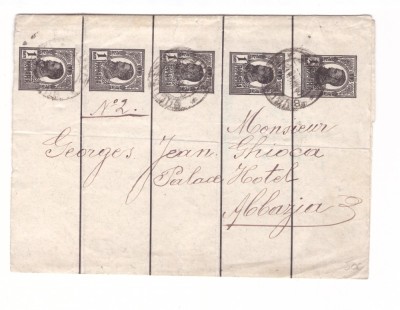 1 1 1 1 1
No 2.
Monsieur
Georges Jean Ghioca
Palace Hotel
Abbazia